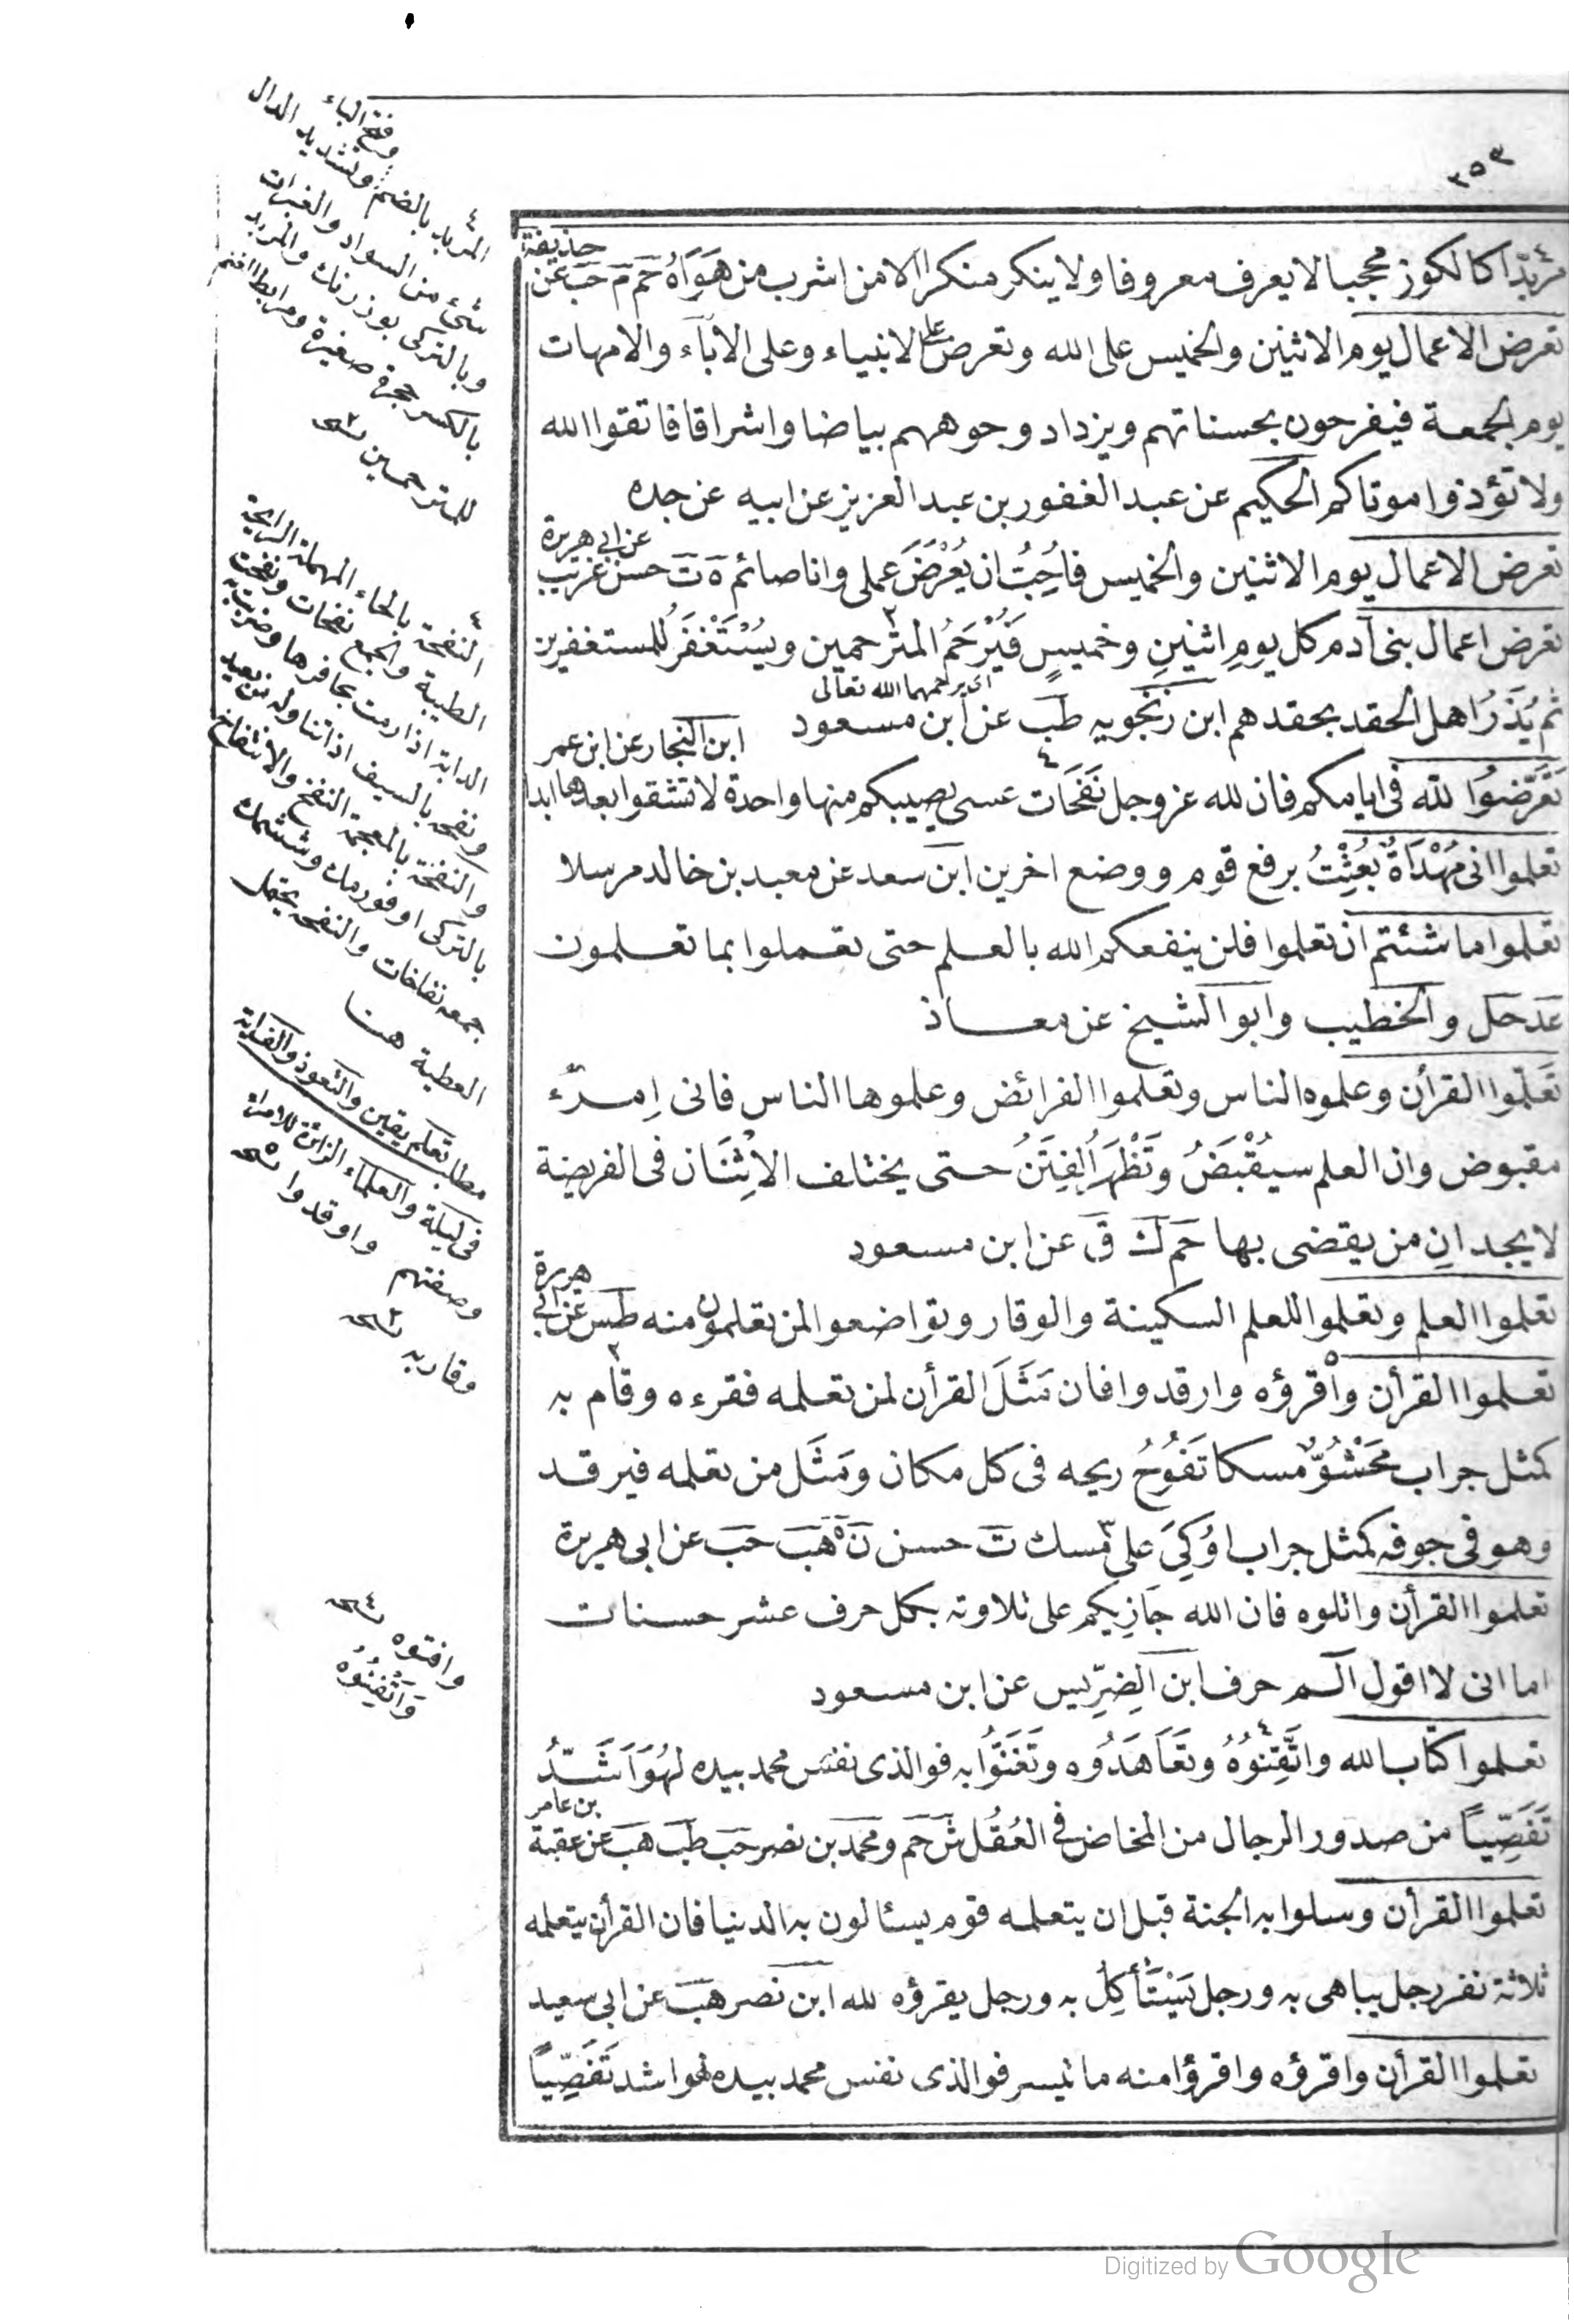 ٢٥٣
مُرْبَدًّا كالكوز مجخيا لا يعرف معروفا ولا ينكر منكرا الا من اشرب من هَوَاهُ حَم مَ حَبَ عن
حذيفة
تعرض الاعمال يوم الاثنين والخميس على الله وتعرض على الانبياء وعلى الاباء والامهات
يوم الجمعة فيفرحون بحسناتهم ويزداد وجوههم بياضا واشراقا فاتقوا الله
ولا تؤذوا موتاكم الحكيم عن عبد الغفور بن عبد العزيز عن ابيه عن جده
تعرض الاعمال يوم الاثنين والخميس فاُحِبُّ ان يُعْرَضَ عملى وانا صائم هَ تَ حسن غريب
عن ابى هريرة
تعرض اعمال بنى آدم كل يومِ اثنينِ وخميسٍ فَيُرْحَمُ المترحمين ويُسْتَغْفَرُ للمستغفرين
اى يرحمهما الله تعالى
ثم يُذَرُ اهل الحقد بحقدهم ابن زنجويه طَب عن ابن مسعود
ابن النجار عن ابن عمر
تَعَرَّضُوا لله فى ايامكم فان لله عز وجل نَفَحَات عسى يصيبكم منها واحدة لا تشقوا بعدها ابدا
تعلموا انى مُهْدَاةٌ بُعِثْتُ برفع قوم ووضع اخرين ابن سعد عن معبد بن خالد مرسلا
تعلموا ما شئتم ان تعلموا فلن ينفعكم الله بالعلم حتى تعملوا بما تعلمون
عَد حَل والخطيب وابو الشيخ عن معاذ
تَعَلّموا القرأن وعلموه الناس وتعلموا الفرائض وعلموها الناس فانى اِمرُء
مقبوض وان العلم سيُقْبَضُ وتَظْهَرَ الفِتَنُ حتى يختلف الاِثْنَان فى الفريضة
لا يجدانِ من يقضى بها حَم كَ قَ عن ابن مسعود
تعلموا العلم وتعلموا للعلم السكينة والوقار وتواضعوا لمن تعلمون منه طَس عن ابى
هريرة
تعلموا القرأن واقرؤه وارقدوا فان مَثَلَ القرأن لمن تعلمه فقرءه وقام به
كمثل جراب مَحْشُوٌّ مسكا تَفُوحُ ريحه فى كل مكان ومَثَل من تعلمه فيرقد
وهو فى جوفه كمثل جراب اُوكِىَ على مسك تَ حسن نَ هَ هَبَ حَبَ عن ابى هريرة
تعلموا القرأن واتلوه فان الله جَازِيكم على تلاوته بكل حرف عشر حسنات
اما انى لا اقول الم حرف ابن الضِرِّيس عن ابن مسعود
تعلموا كتاب الله واتَّقِنُوهُ وتَعَاهَدُوه وتَغَنَّوا به فوالذى نفس محمد بيده لهُوَ اَشَدُّ
تَفَصِّيًا من صدور الرجال من المخاض فى العُقُل شَ حَم ومحمد بن نصر حَب طَب هَب عن عقبة
بن عامر
تعلموا القرأن وسلوا به الجنة قبل ان يتعلمه قوم يسئالون به الدنيا فان القرأن يتعلمه
ثلاثة نفر رجل يباهى به ورجل يَسْتَأكِلُ به ورجل يقرؤه لله ابن نصر هَب عن ابى سعيد
تعلموا القرأن واقرؤه واقرؤا منه ما تيسر فوالذى نفس محمد بيده لهو اشد تَفَصِّيًا
وفتح الباء
المربد بالضم وتشديد الدال
شئ من السواد والغبرات
بالكسر حجرة صغيرة
للمترحمين نسخه
النفحة بالحاء المهملة الرايحة
الطيبة والجمع نفحات ونفحت
الدابة اذا رمت بحافرها وضربت به
ونفحه بالسيف اذا تناوله من بعيد
والنفخة بالمعجمة النفخ والانتفاخ
جمعه نفاخات والنفحه يحتمل
العطية هنا
مطلب تعلم يقين والتعوذ
فى ليلة والعلماء الزائرة للامراء
وصفتهم واوقدوا نسخه
وقاربه نسخه
وافتوه نسخه
وَاَتْقِنُوُهُ
Digitized by Google